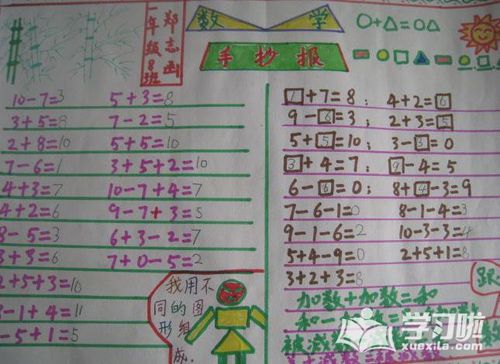 数 学
手抄报
一年级8班
郑志函
○+△=○△
10-7=3 5+3=8
3+5=8 7-2=5
2+8=10 5+5=10
7-6=1 3+5+2=10
4+3=7 10-7+4=7
4+2=6 9-7+3=5
8-5=3 6+3-2=7
3+3=6 7+0-5=2
2+5+3=10
3-1+4=11
-5+1=5
我用不
同的图
形组
成
1+7=8; 4+2=6
9-6=3; 2+3=5
5+5=10; 3-3=0
3+4=7; 9-4=5
6-6=0; 8+4-3=9
7-6-1=0 8-1-4=3
9-1-6=2 10-3-3=4
5+4-9=0 2+5+1=8
3+2+3=8
加数+加数=和
学习啦
xuexila.com